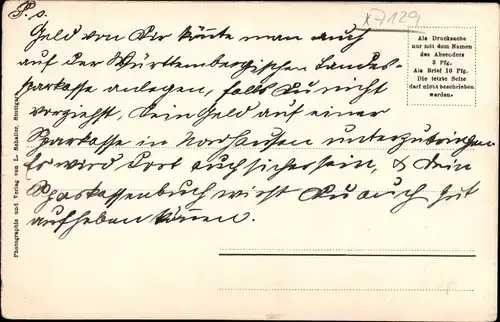 P. s.
Geld von Dir könnte man auch
auf der Württembergischen Landes-
sparkasse anlegen, falls Du nicht
vorziehst, Dein Geld auf einer
Sparkasse in Nordhausen unterzubringen.
Es wird dort auch sicher sein, & Dein
Sparkassenbuch wirst Du auch gut
aufheben können.
x7129
Als Drucksache
nur mit dem Namen
des Absenders
3 Pfg.
Als Brief 10 Pfg.
Die letzte Seite
darf nicht beschrieben
werden.
Photographie und Verlag von L. Schaller, Stuttgart